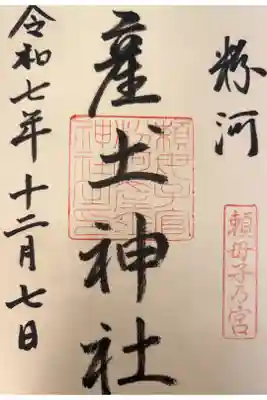 粉河
頼母子乃宮
産土神社
令和七年十二月七日